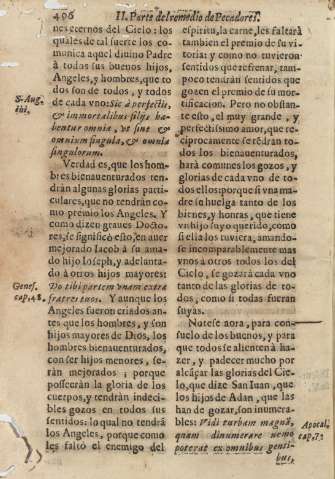 406 II. Parte del remedio de Pecadores.
nes eternos del Cielo: los
quáles de tal suerte los co-
munica aquel divino Padre
à todos sus buenos hijos,
Angeles, y hombres, que to
dos son de todos, y todos
de cada vno: Sic à perfectis,
& immortalibus filijs ha-
bentur omnia, vt sint &
omnium singula, & omnia
singulorum.
S. Aug-
Verdad es, que los hom-
bres bienauenturados ten-
drán algunas glorias parti-
culares, que no tendrán co-
mo premio los Angeles. Y
como dizen graues Docto-
res, se significò esto, en auer
mejorado Iacob à su ama-
do hijo Ioseph, y adelanta-
do à otros hijos mayores:
Do tibi partem vnam extra
fratres tuos. Y aunque los
Angeles fueron criados an-
tes que los hombres, y son
hijos mayores de Dios, los
hombres bienauenturados,
con ser hijos menores, se-
rán mejorados; porque
posseerán la gloria de los
cuerpos, y tendrán indeci-
bles gozos en todos sus
sentidos: lo qual no tendrá
los Angeles, porque como
les faltó el enemigo del
Genes.
cap. 48.
espiritu, la carne, les faltará
tambien el premio de su vi-
toria; y como no tuvieron
sentidos que refrenar, tam-
poco tendrán sentidos que
gozen el premio de su mor-
tificacion. Pero no obstan-
te esto, el muy grande, y
perfectissimo amor, que re-
ciprocamente se tédrán to-
dos los bienauenturados,
hará comunes los gozos, y
glorias de cada vno de to-
dos ellos: porque si vna ma-
dre se huelga tanto de los
bienes, y honras, que tiene
vn hijo suyo querido, como
si ella los tuviera; amando-
se incomparablemente mas
vnos à otros todos los del
Cielo, se gozará cada vno
tanto de las glorias de to-
dos, como si todas fueran
suyas.
Notese aora, para con-
suelo de los buenos, y para
que todos se alienten à ha-
zer, y padecer mucho por
alcáçar las glorias del Cie-
lo, que dize San Iuan, que
los hijos de Adan, que las
han de gozar, son inumera-
bles: Vidi turbam magná,
quam dinumerare nemo
poterat ex omnibus genti-
bus,
Apocal.
cap. 7.